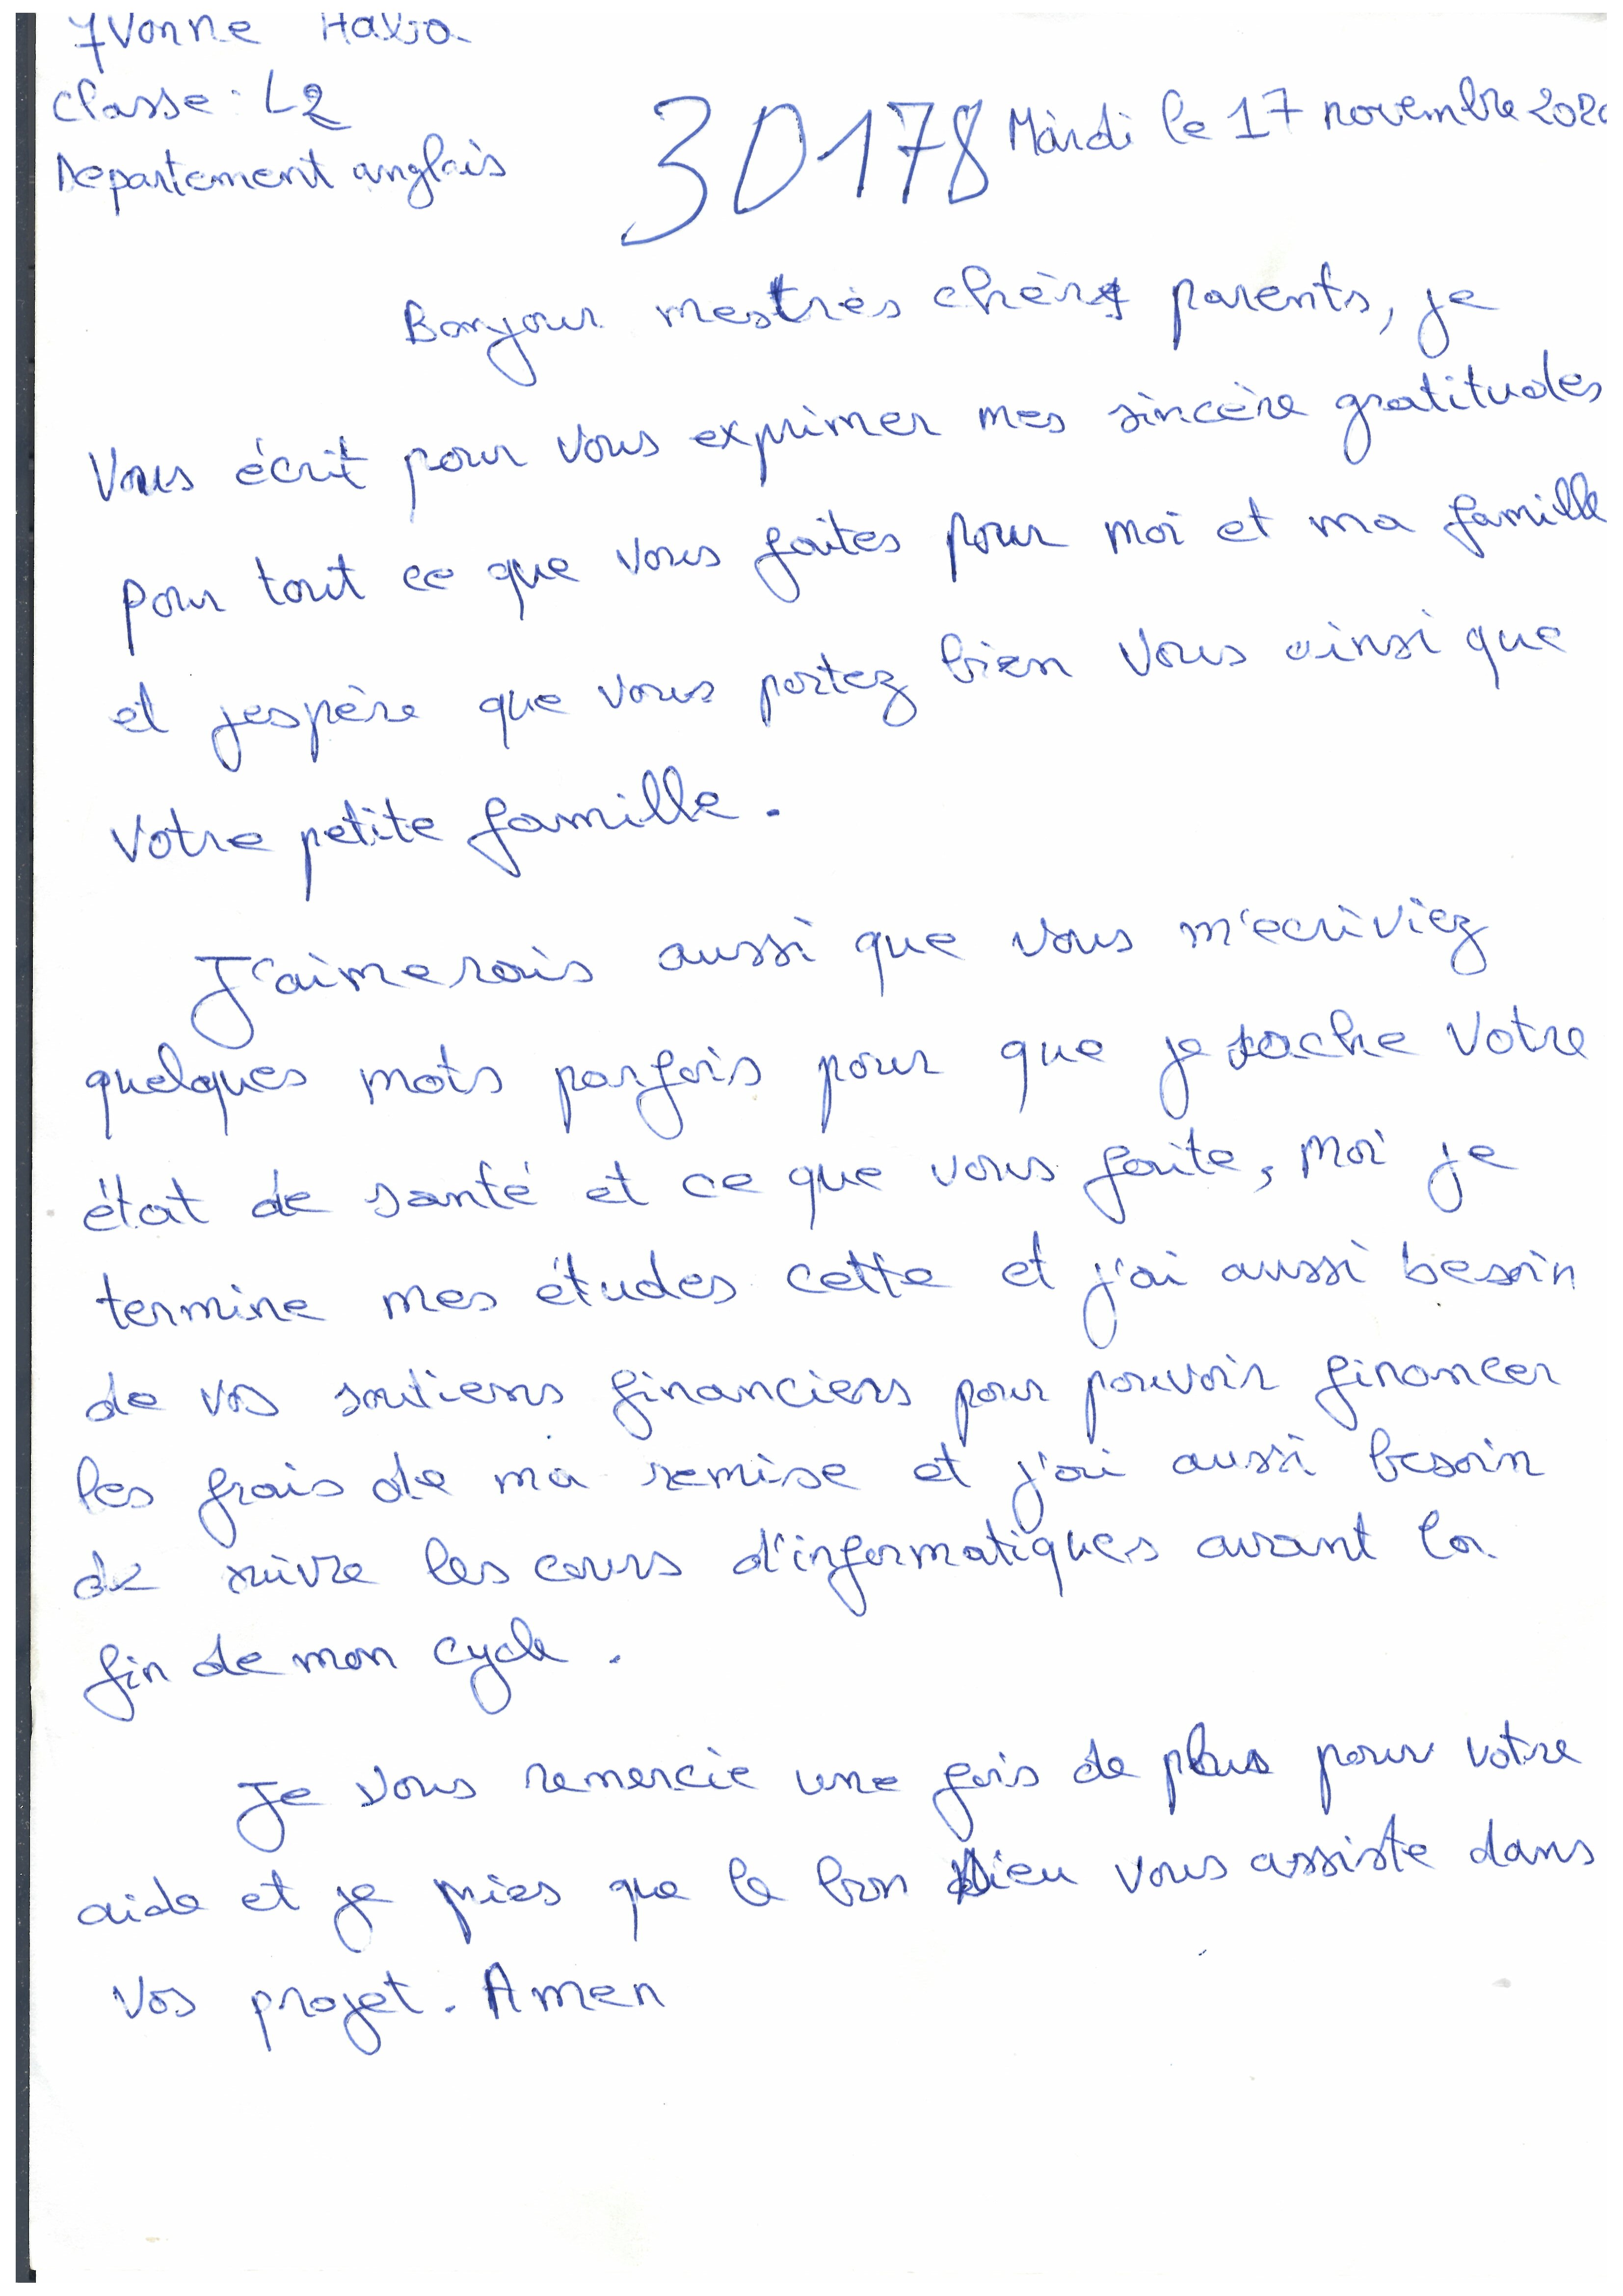 Yvonne
Classe : L2
Departement anglais
30178 Mardi le 17 novembre 2020
Bonjour mes très chèrs parents, je
Vous écrit pour vous exprimer mes sincère gratitudes
pour tout ce que vous faites pour moi et ma famille
et jespère que vous portez bien vous ainsi que
votre petite famille.
J'aimerais aussi que vous m'ecriviez
quelques mots parfois pour que je sache votre
état de santé et ce que vous faite, moi je
termine mes études cette et j'ai aussi besoin
de vos soutiens financiers pour pouvoir financer
les frais de ma remise et j'ai aussi besoin
de suivre les cours d'informatiques avant la
fin de mon cycle.
Je vous remercie une fois de plus pour votre
aide et je pries que le bon Dieu vous assiste dans
vos projet. Amen